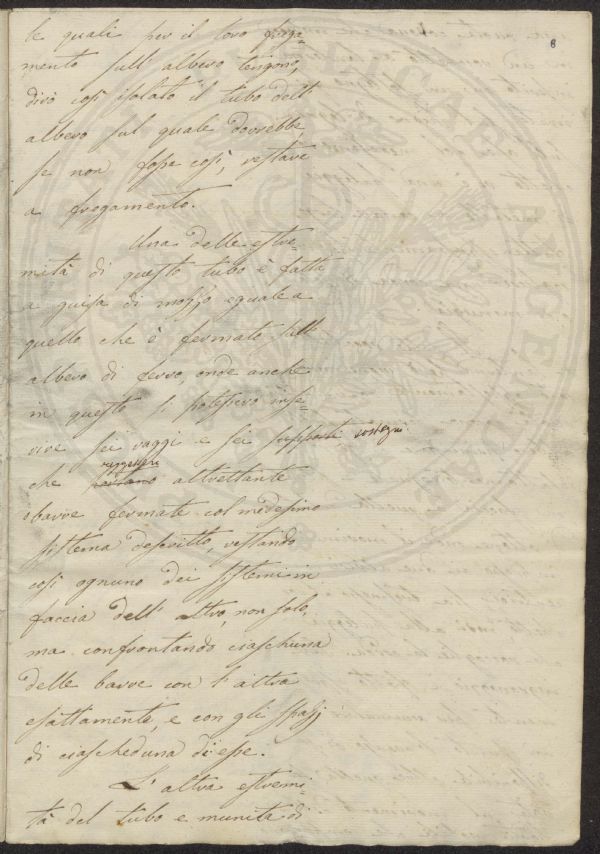 8
le quali per il loro frega-
mento sull' albero tengono,
dirò così isolato il tubo dell'
albero sul quale dovrebbe,
se non fosse così, restare
a fregamento.
Una delle estre-
mità di questo tubo è fatta
a guisa di mozzo eguale a
quello che è fermato sull'
albero di ferro, onde anche
in questo si potessero inse-
rire sei raggi e sei supporti sostegni
che portano reggessero altrettante
sbarre fermate col medesimo
sistema descritto, restando
così ognuno dei sistemi in
faccia dell' altro, non solo,
ma confrontando ciaschuna
delle barre con l'altra
esattamente, e con gli spazj
di ciascheduna di esse.
L' altra estremi-
tà del tubo e munita di